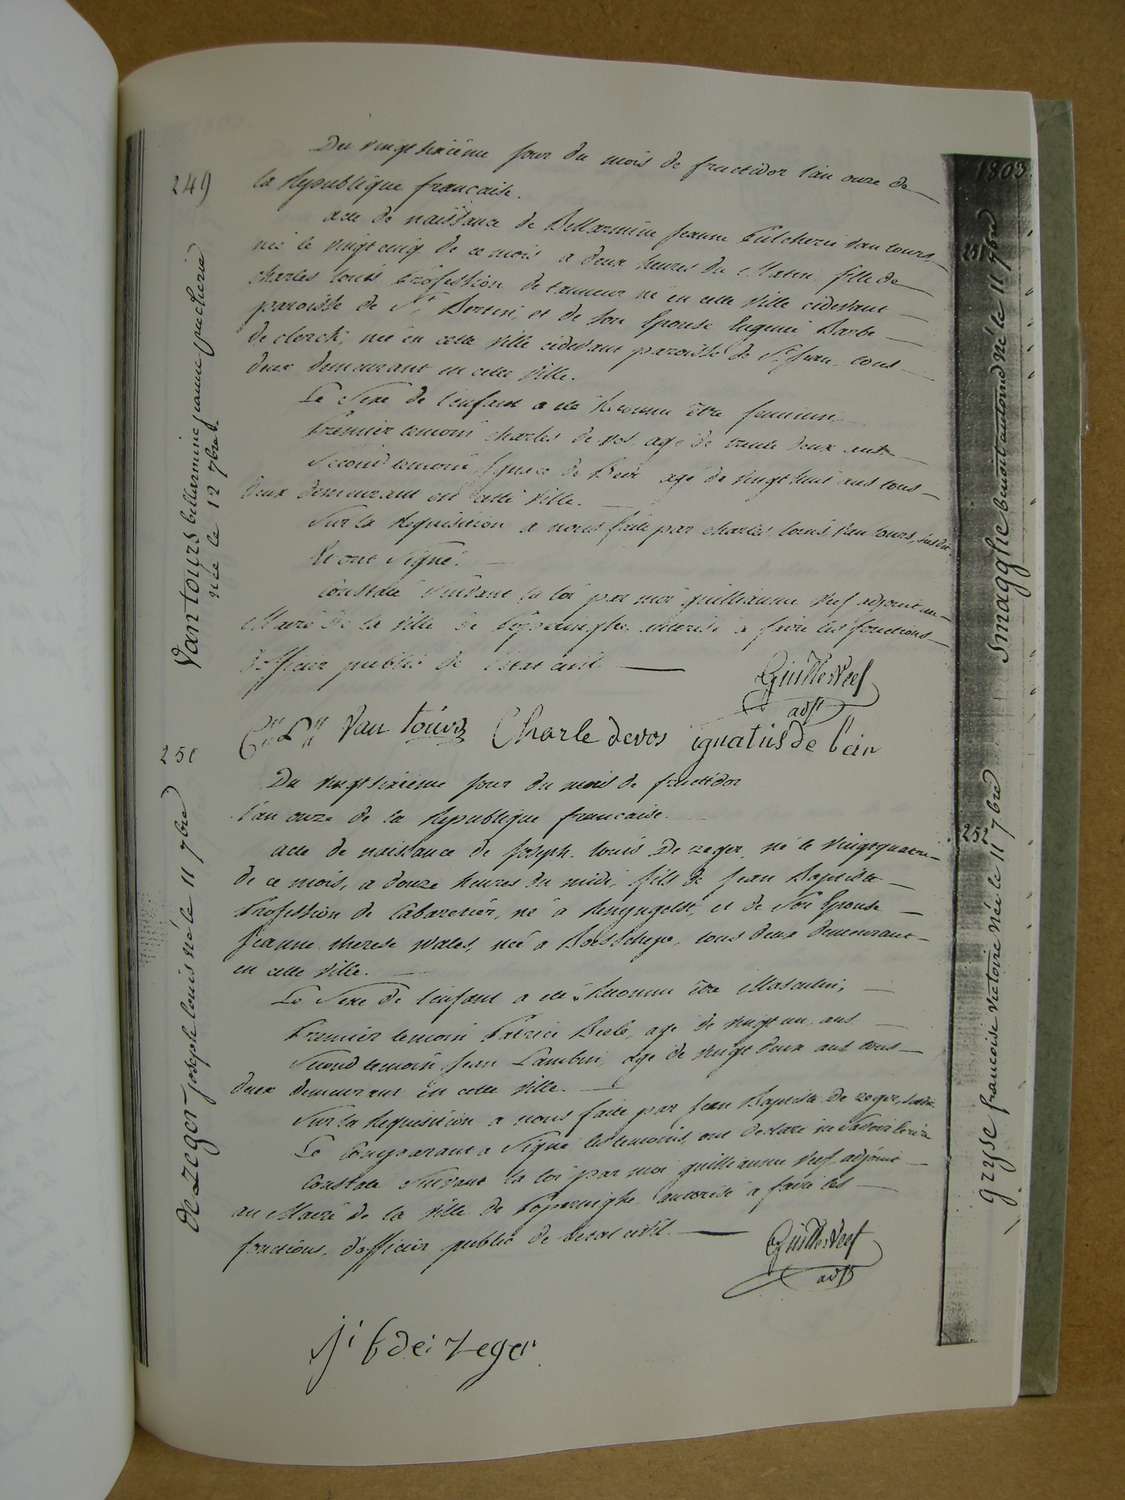 249
Van tours bellarmine jeanne pulcherie
née le 12 7bre
Du vingt sixième jour du mois de fructidor l'an onze de
la Republique francaise.
acte de naissance de Bellarmine Jeanne Pulcherie Van tours
née le vingt cinq de ce mois a deux heures du Matin fille de
charles louis Profession de tanneur né en cette ville cidevant
paroisse de St Bertin, et de son Epouse Eugenie Barbe
de clerck, née en cette ville cidevant paroisse de St Jean, tous
deux demeurant en cette ville.
Le Sexe de l'enfant a été Reconnu être feminin
Premier temoin charles de vos agé de trente deux ans
Second temoin Ignace de agé de vingt huit ans tous
deux demeurant en cette ville.
Sur la Requisition a nous faite par charles louis Van tours, susdit
et ont Signé.
Constaté Suivant la loi par moi guilliaume Veef adjoint au
Maire de la ville de Poperinghe autorisé a faire les fonctions
d'officier public de l'état civil
Guille Veef
adjt
Cls Ls Van tours Charle devos ignatius de
250
De Zeger joseph louis né le 11 7bre
Du vingt sixieme jour du mois de fructidor
l'an onze de la Republique francaise.
acte de naissance de Joseph Louis De zeger, né le vingt quatre
de ce mois, a douze heures du midi, fils de Jean Baptiste
Profession de Cabaretier, né a Renyngelst, et de Son Epouse
Jeanne therese Wales, née a Boesschepe, tous deux demeurant
en cette ville.
Le Sexe de l'enfant a été Reconnu être Masculin,
Premier temoin Patrice agé de vingt un ans
Second temoin Jean Lambin, agé de vingt deux ans tous
deux demeurant en cette ville.
Sur la Requisition a nous faite par Jean Baptiste De zeger, susdit
Le Comparant a Signé les temoins ont declaré ne Savoir Ecrire
Constaté Suivant la loi par moi guilliaume Veef adjoint
au Maire de la ville de Poperinghe autorisé a faire les
fonctions d'officier public de l'etat civil.
Guille Veef
adjt
j: b de: zeger
1803
251
Smagghe benoit antoine né le 11 7bre
252
gryse francoise victoire née le 11 7bre